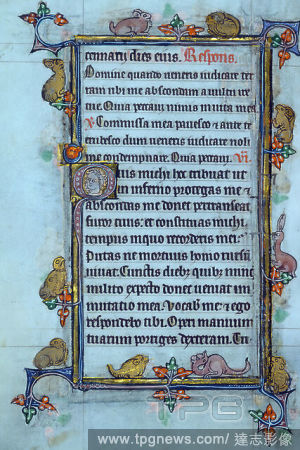 cernatur dies eius. Respons.
Domine quando veneris iudicare ter
ram ubi me abscondam a vultu ire
tue. Quia peccavi nimis in vita mea
V Commissa mea pavesco et ante te
erubesco dum veneris iudicare noli
me condempnare. Quia peccavi.
Quis michi hoc tribuat ut
in inferno protegas me et
abscondas me donec pertranseat
furor tuus: et constituas michi
tempus in quo recorderis mei:
Putas ne mortuus homo rursum
vivat. Cunctis diebus quibus nunc
milito expecto donec veniat im
mutatio mea. Vocabis me et ego
respondebo tibi. Operi manuum
tuarum porriges dexteram. Tu
TPG
www.tpgnews.com/ 達志影像